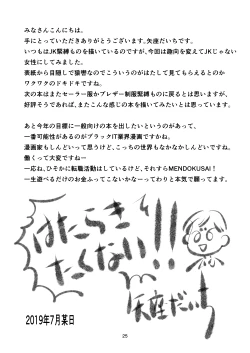 みなさんこんにちは。
手にとっていただきありがとうございます。矢座だいちです。
いつもはJK緊縛ものを描いているのですが、今回は趣向を変えてJKじゃない
女性にしてみました。
表紙から目隠しで猿轡なのでこういうのがはたして見てもらえるとのか
ワクワクのドキドキですね。
次の本はまたセーラー服かブレザー制服緊縛ものに戻るとは思いますが、
好評そうであれば、またこんな感じの本を描いてみたいとは思っています。
あと今年の目標に一般向けの本を出したいというのがあって、
一番可能性があるのがブラックIT業界漫画ですかね。
漫画家もしんどいって思うけど、こっちの世界もなかなかしんどいですね。
働くって大変ですねー
一応ね、ひそかに転職活動はしているけど、それすらMENDOKUSAI!
一生遊べるだけのお金ふってこないかなーってわりと本気で願ってます。
はたらき
たくない!!
矢座だいち
2019年7月某日
25